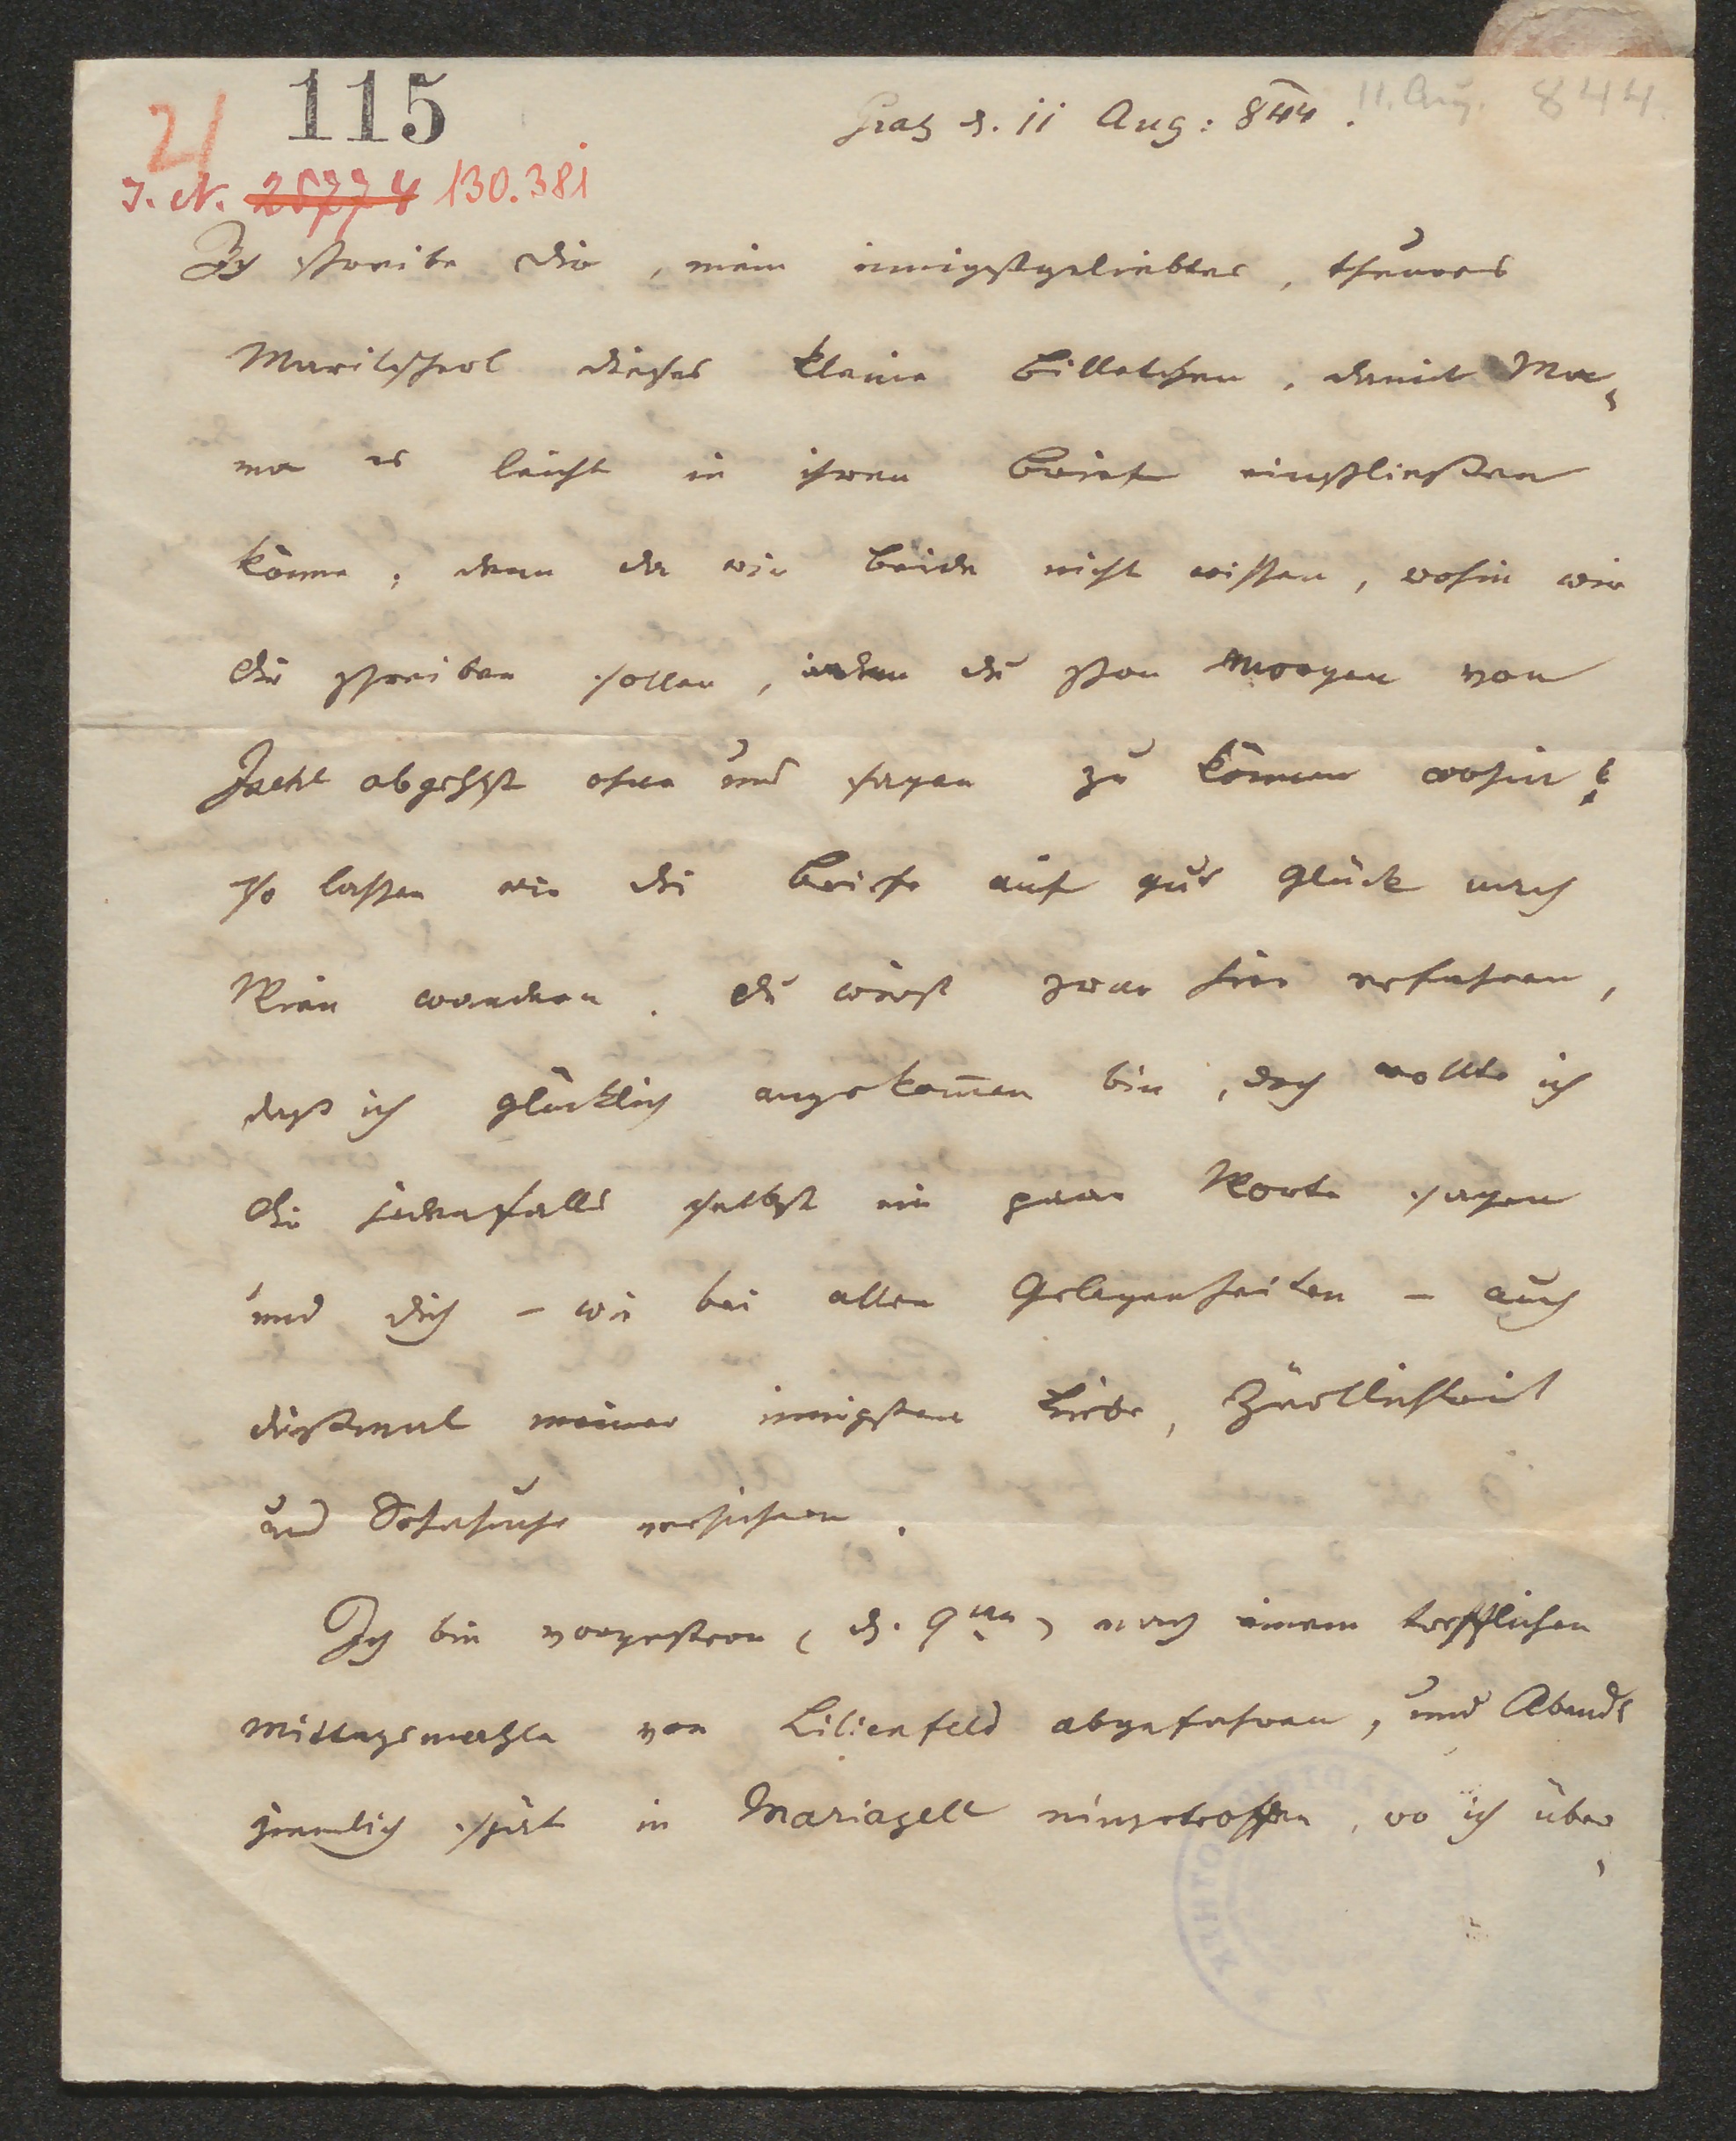 115
21
I. N. 25774 130.381
Gratz d. 11 Aug: 844.
11. Aug. 844
Ich schreibe dir, mein innigstgeliebtes, theures
Marileherl dieses kleine Billetchen, damit Ma,
ma es leicht in ihren Brief einschließen
könne, denn da wir beide nicht wissen, wohin wir
dir schreiben sollen, indem du schon morgen von
Ischl abgehst ohne uns sagen zu können wohin?
so lassen wir die Briefe auf gut Glück nach
Wien wandern. du wirst zwar hier erfahren,
daß ich glücklich angekom̅en bin, doch wollte ich
dir jedenfalls selbst ein paar Worte sagen
und dich – wie bei allen Gelegenheiten – auch
dießmal meiner innigsten Liebe, Zärtlichkeit
und Sehnsucht versichern.
Ich bin vorgestern (d. 9ten) nach einem trefflichen
Mittagsmahle von Lilienfeld abgefahren, und Abends
ziemlich spät in Mariazell eingetroffen, wo ich über,